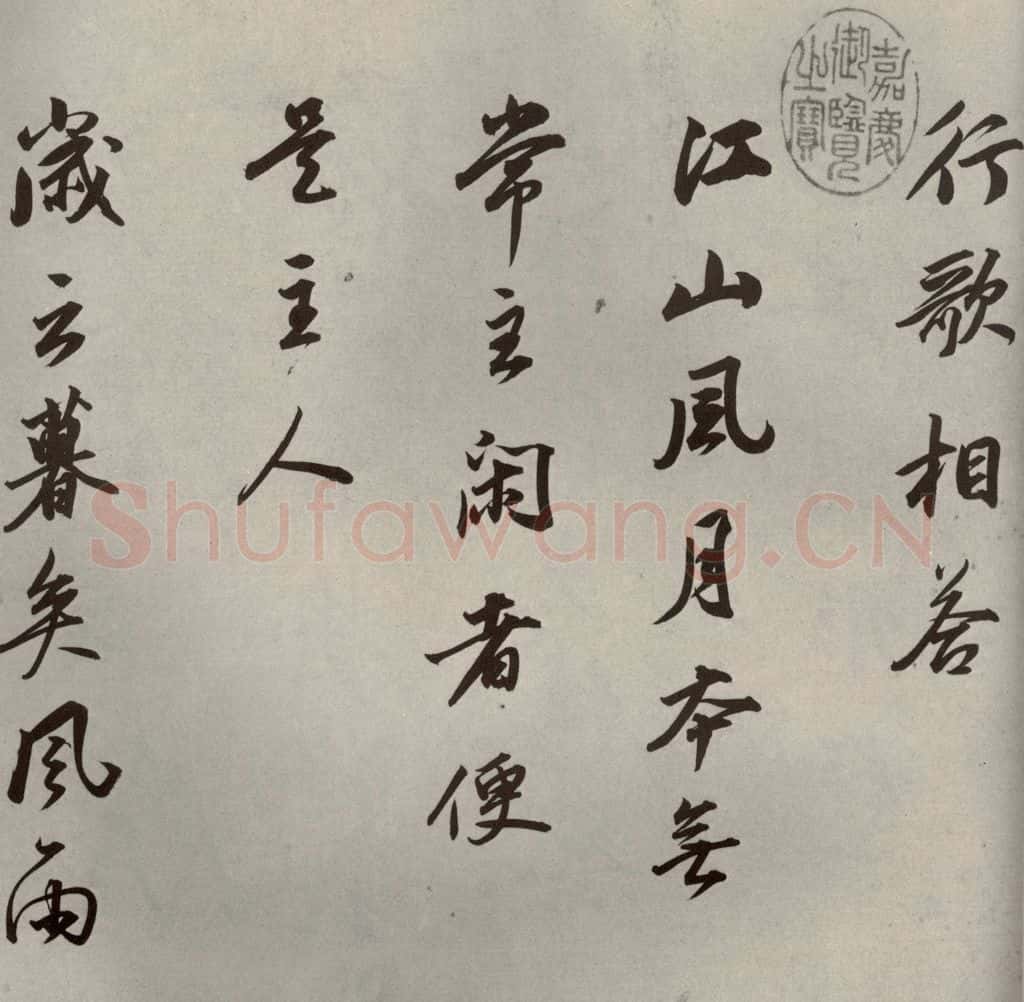 行歌相答
江山風月本無
常主閑者便
是主人
歲云暮矣風雨
嘉慶
御覽
之寶
Shufawang.CN